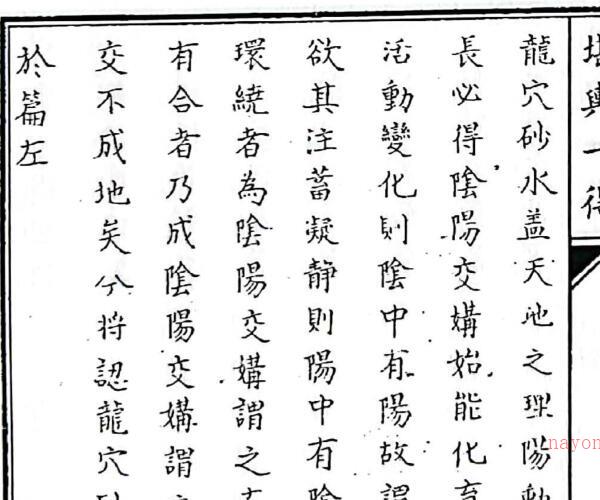 堪輿一得
龍穴砂水盖天地之理陽動
長必得陰陽交媾始能化育
活動變化則陰中有陽故謂
欲其注蓄凝静則陽中有陰
環繞者為陰陽交媾謂之有
有合者乃成陰陽交媾謂之
交不成地矣今将認龍穴砂
於篇左
nayon